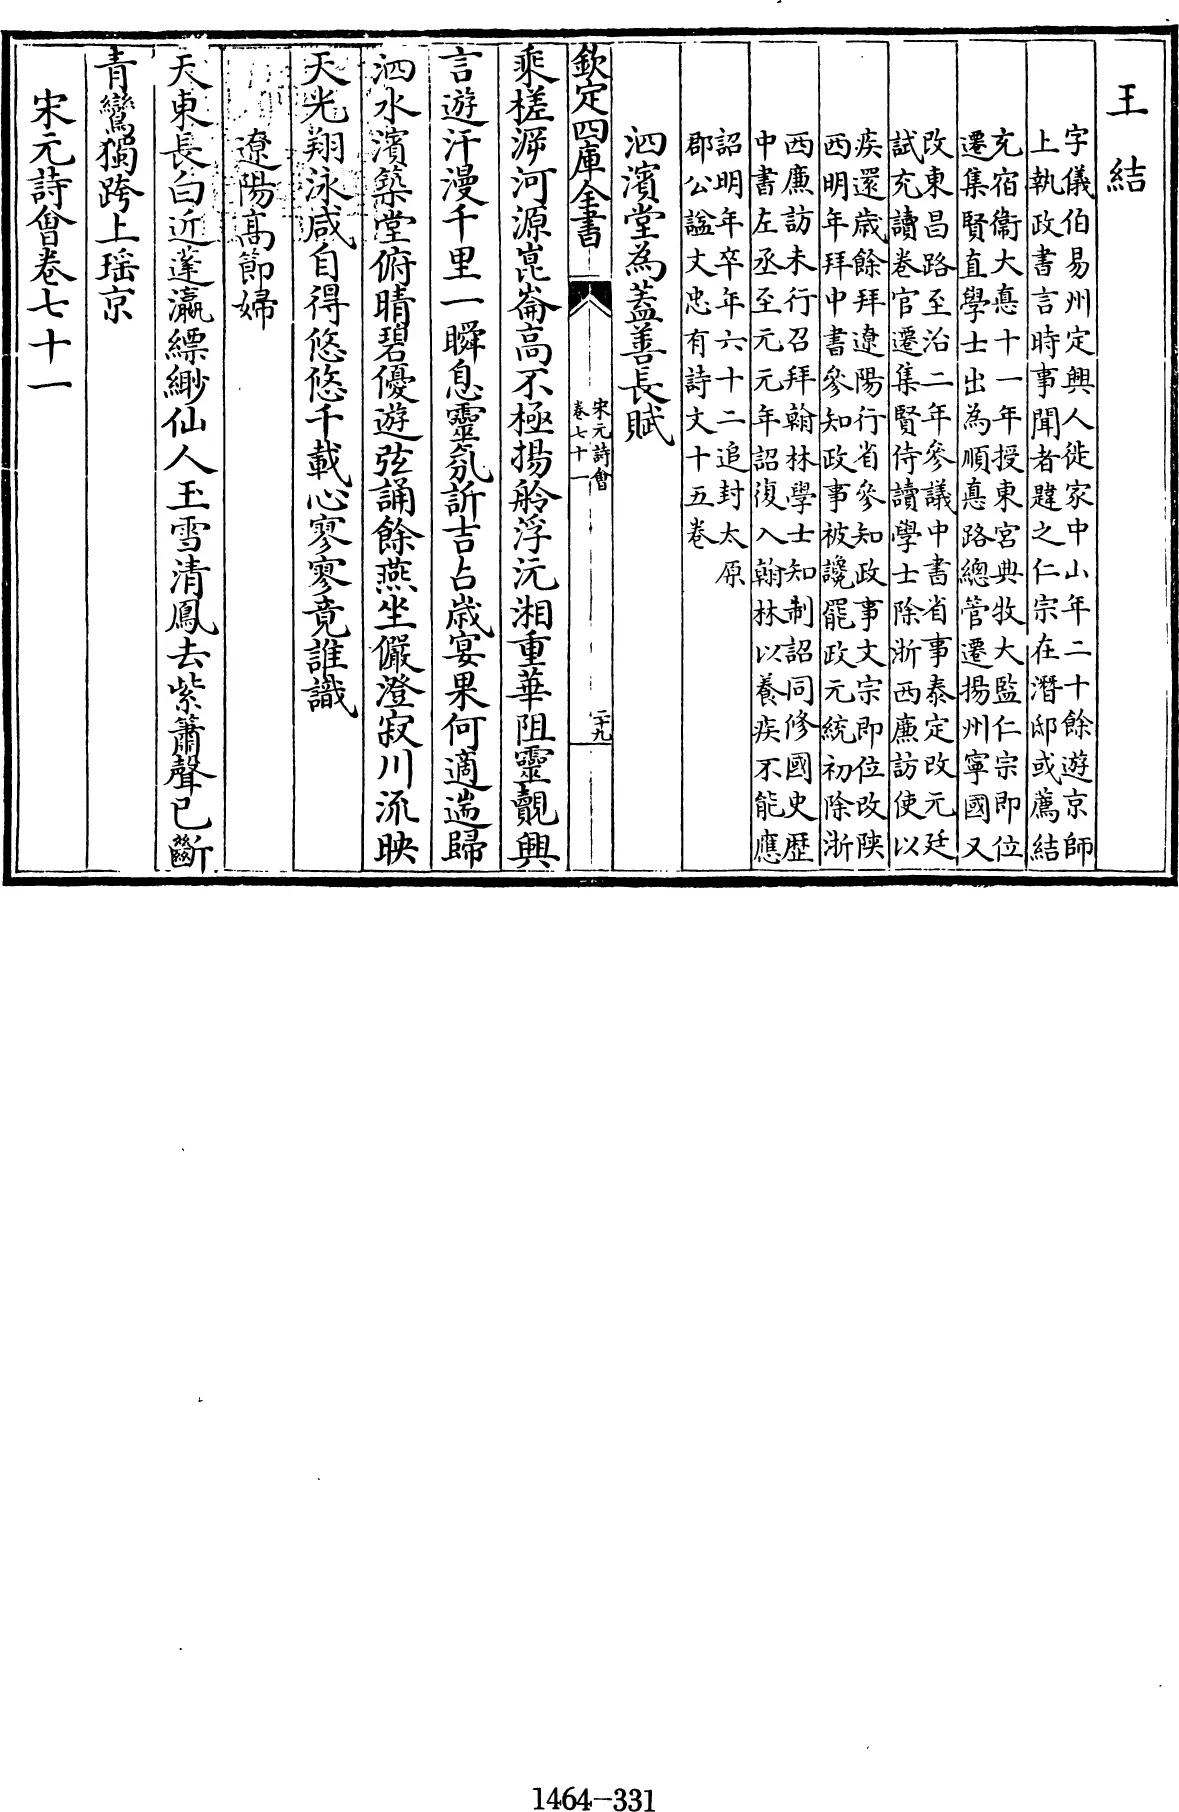 王結
字儀伯易州定興人徙家中山年二十餘遊京師
上執政書言時事聞者韙之仁宗在潛邸或薦結
充宿衞大悳十一年授東宮典牧大監仁宗即位
遷集賢直學士出為順悳路總管遷揚州寧國又
改東昌路至治二年參議中書省事泰定改元廷
試充讀卷官遷集賢侍讀學士除浙西廉訪使以
疾還歲餘拜遼陽行省參知政事文宗即位改陝
西明年拜中書參知政事被讒罷政元統初除浙
西廉訪未行召拜翰林學士知制詔同修國史歷
中書左丞至元元年詔復入翰林以養疾不能應
詔明年卒年六十二追封太原
郡公諡文忠有詩文十五卷
泗濱堂為蓋善長賦
欽定四庫全書
宋元詩會
卷七十一
二十九
乘槎泝河源崑崙高不極揚舲浮沅湘重華阻靈覿興
言遊汗漫千里一瞬息靈氛訢吉占歲宴果何適遄歸
泗水濱築堂俯晴碧優遊弦誦餘燕坐儼澄寂川流映
天光翔泳咸自得悠悠千載心寥寥竟誰識
遼陽高節婦
天東長白近蓬瀛縹緲仙人玉雪清鳳去紫簫聲已斷
青鸞獨跨上瑶京
宋元詩會卷七十一
1464-331